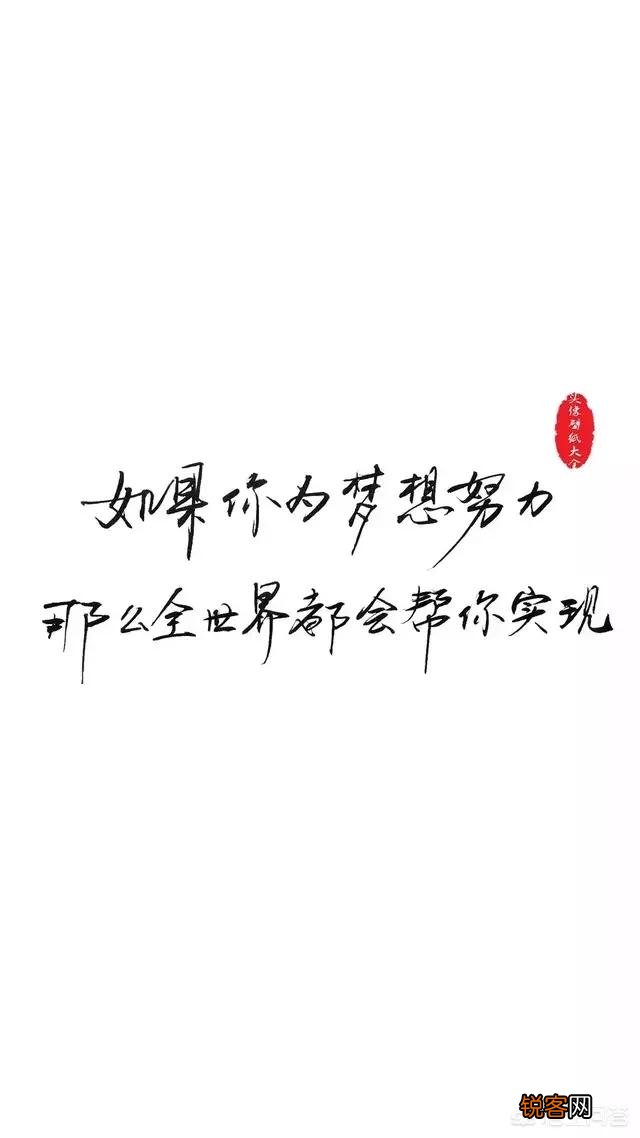 头像壁纸大全
如果你为梦想努力
那么全世界都会帮你实现
锐客网